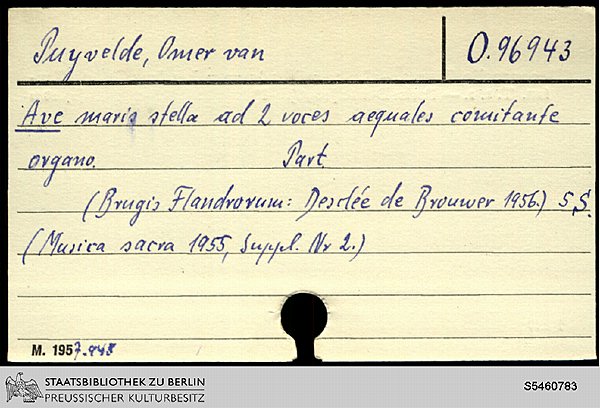 Puyvelde, Omer van
O. 96943
Ave maris stella ad 2 voces aequales comitante
organo. Part.
(Brugis Flandrorum: Desclée de Brouwer 1956.) 5 S.
(Musica sacra 1955, Suppl. Nr 2.)
M. 1957.948
STAATSBIBLIOTHEK ZU BERLIN
PREUSSISCHER KULTURBESITZ
S5460783